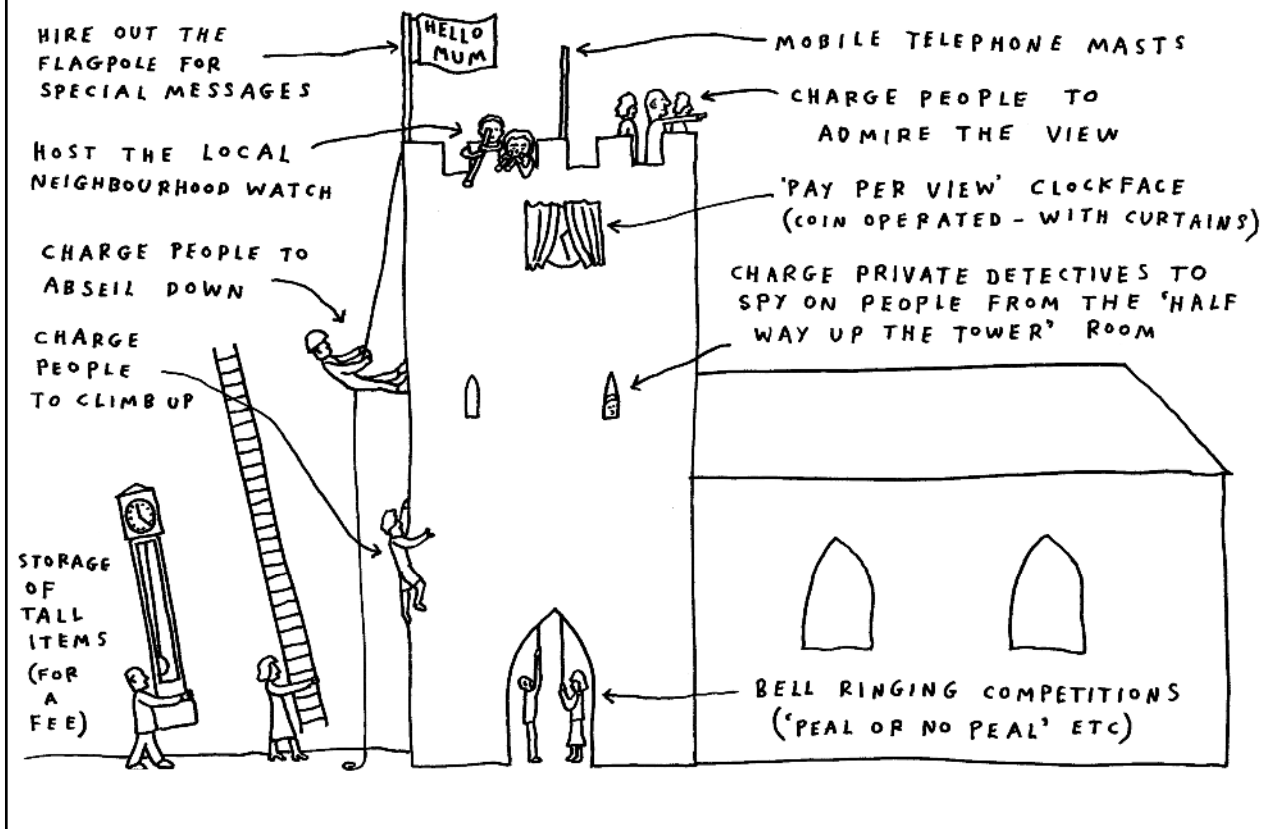 HIRE OUT THE
FLAGPOLE FOR
SPECIAL MESSAGES
HELLO
MUM
MOBILE TELEPHONE MASTS
CHARGE PEOPLE TO
ADMIRE THE VIEW
HOST THE LOCAL
NEIGHBOURHOOD WATCH
'PAY PER VIEW' CLOCKFACE
(COIN OPERATED - WITH CURTAINS)
CHARGE PEOPLE TO
ABSEIL DOWN
CHARGE PRIVATE DETECTIVES TO
SPY ON PEOPLE FROM THE 'HALF
WAY UP THE TOWER' ROOM
CHARGE
PEOPLE
TO CLIMB UP
STORAGE
OF
TALL
ITEMS
(FOR
A
FEE)
BELL RINGING COMPETITIONS
('PEAL OR NO PEAL' ETC)